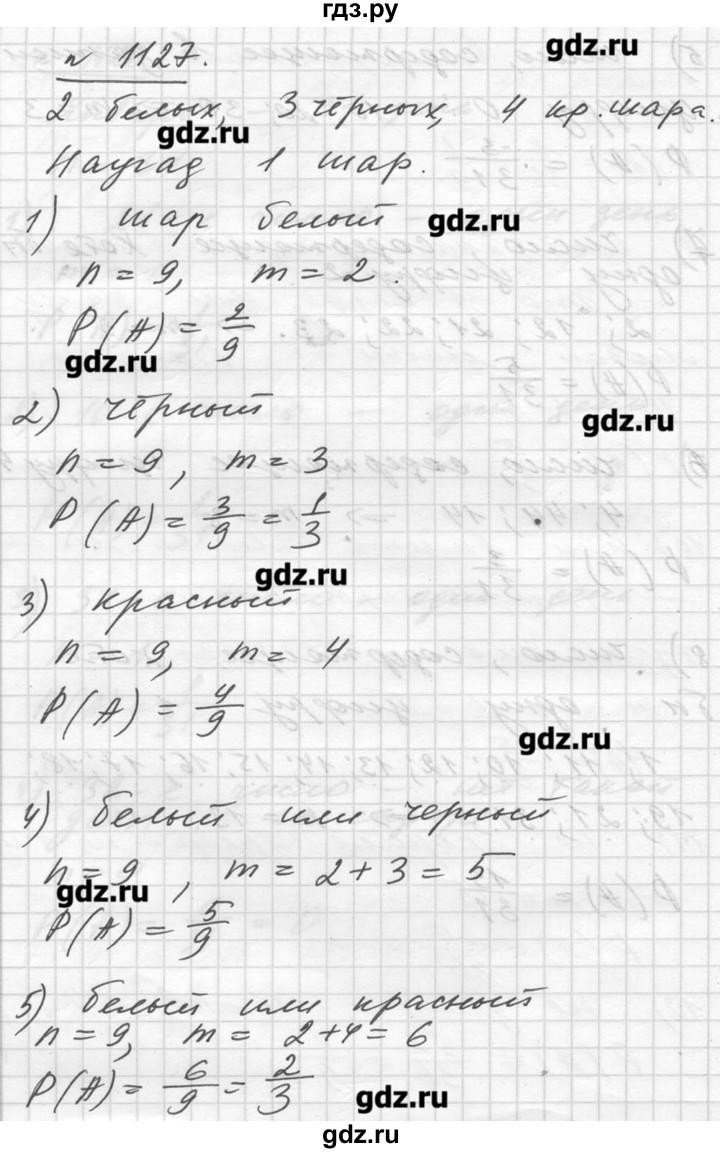 гдз.ру
gdz.ru
n 1127.
2 белых, 3 чёрных, 4 кр. шара.
gdz.ru
Наугад 1 шар.
1) шар белый
gdz.ru
n = 9, m = 2.
P(A) = 2/9
gdz.ru
2) чёрный
gdz.ru
n = 9, m = 3
P(A) = 3/9 = 1/3.
gdz.ru
3) красный
n = 9, m = 4
P(A) = 4/9
gdz.ru
4) белый или черный
n = 9, m = 2 + 3 = 5
gdz.ru
P(A) = 5/9
5) белый или красный
n = 9, m = 2 + 4 = 6
P(A) = 6/9 = 2/3
gdz.ru
gdz.ru